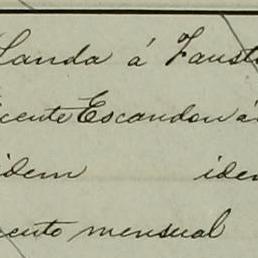 Landa á Faust
cente Escandon á
idem iden
cento mensual